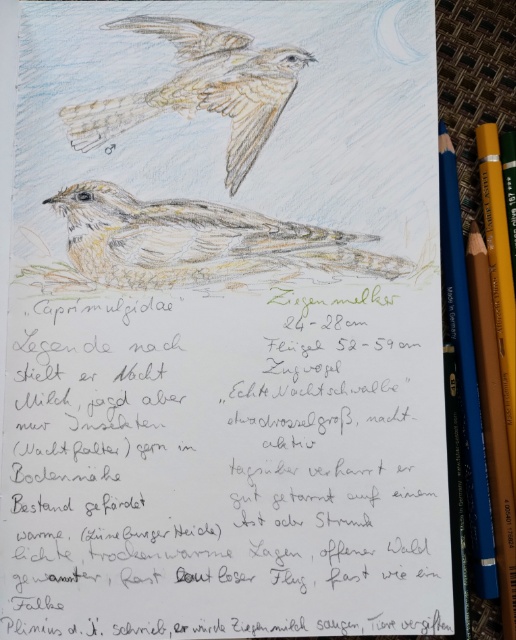 ♂
„Caprimulgidae"
Legende nach
stielt er Nacht
Milch, jagd aber
nur Insekten
(Nachtfalter) gern in
Bodennähe
Bestand gefärdet
Ziegenmelker
24-28cm
Flügel 52-59cm
Zugvogel
„Echte Nachtschwalbe"
etwa drosselgroß, nacht-
aktiv
tagsüber verharrt er
gut getarnt auf einem
Ast oder Strunk
warme, (Lüneburger Heide)
lichte, trockenwarme Lagen, offener Wald
gewannter, fast lautloser Flug, fast wie ein
Falke
Plinius d. Ä. schrieb, er würde Ziegenmilch saugen, Tiere vergiften
Made in Germany